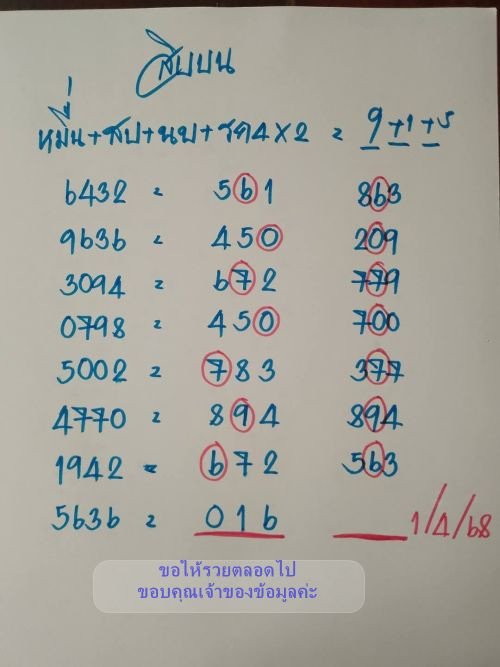 สิบบน
หมื่น+สบ+นบ+รค4×2 = 9+1+5
6432 = 561 863
9636 = 450 209
3094 = 672 779
0798 = 450 700
5002 = 783 377
4770 = 894 894
1942 = 672 563
5636 = 016 ___ 1/4/68
ขอให้รวยตลอดไป
ขอบคุณเจ้าของข้อมูลค่ะ